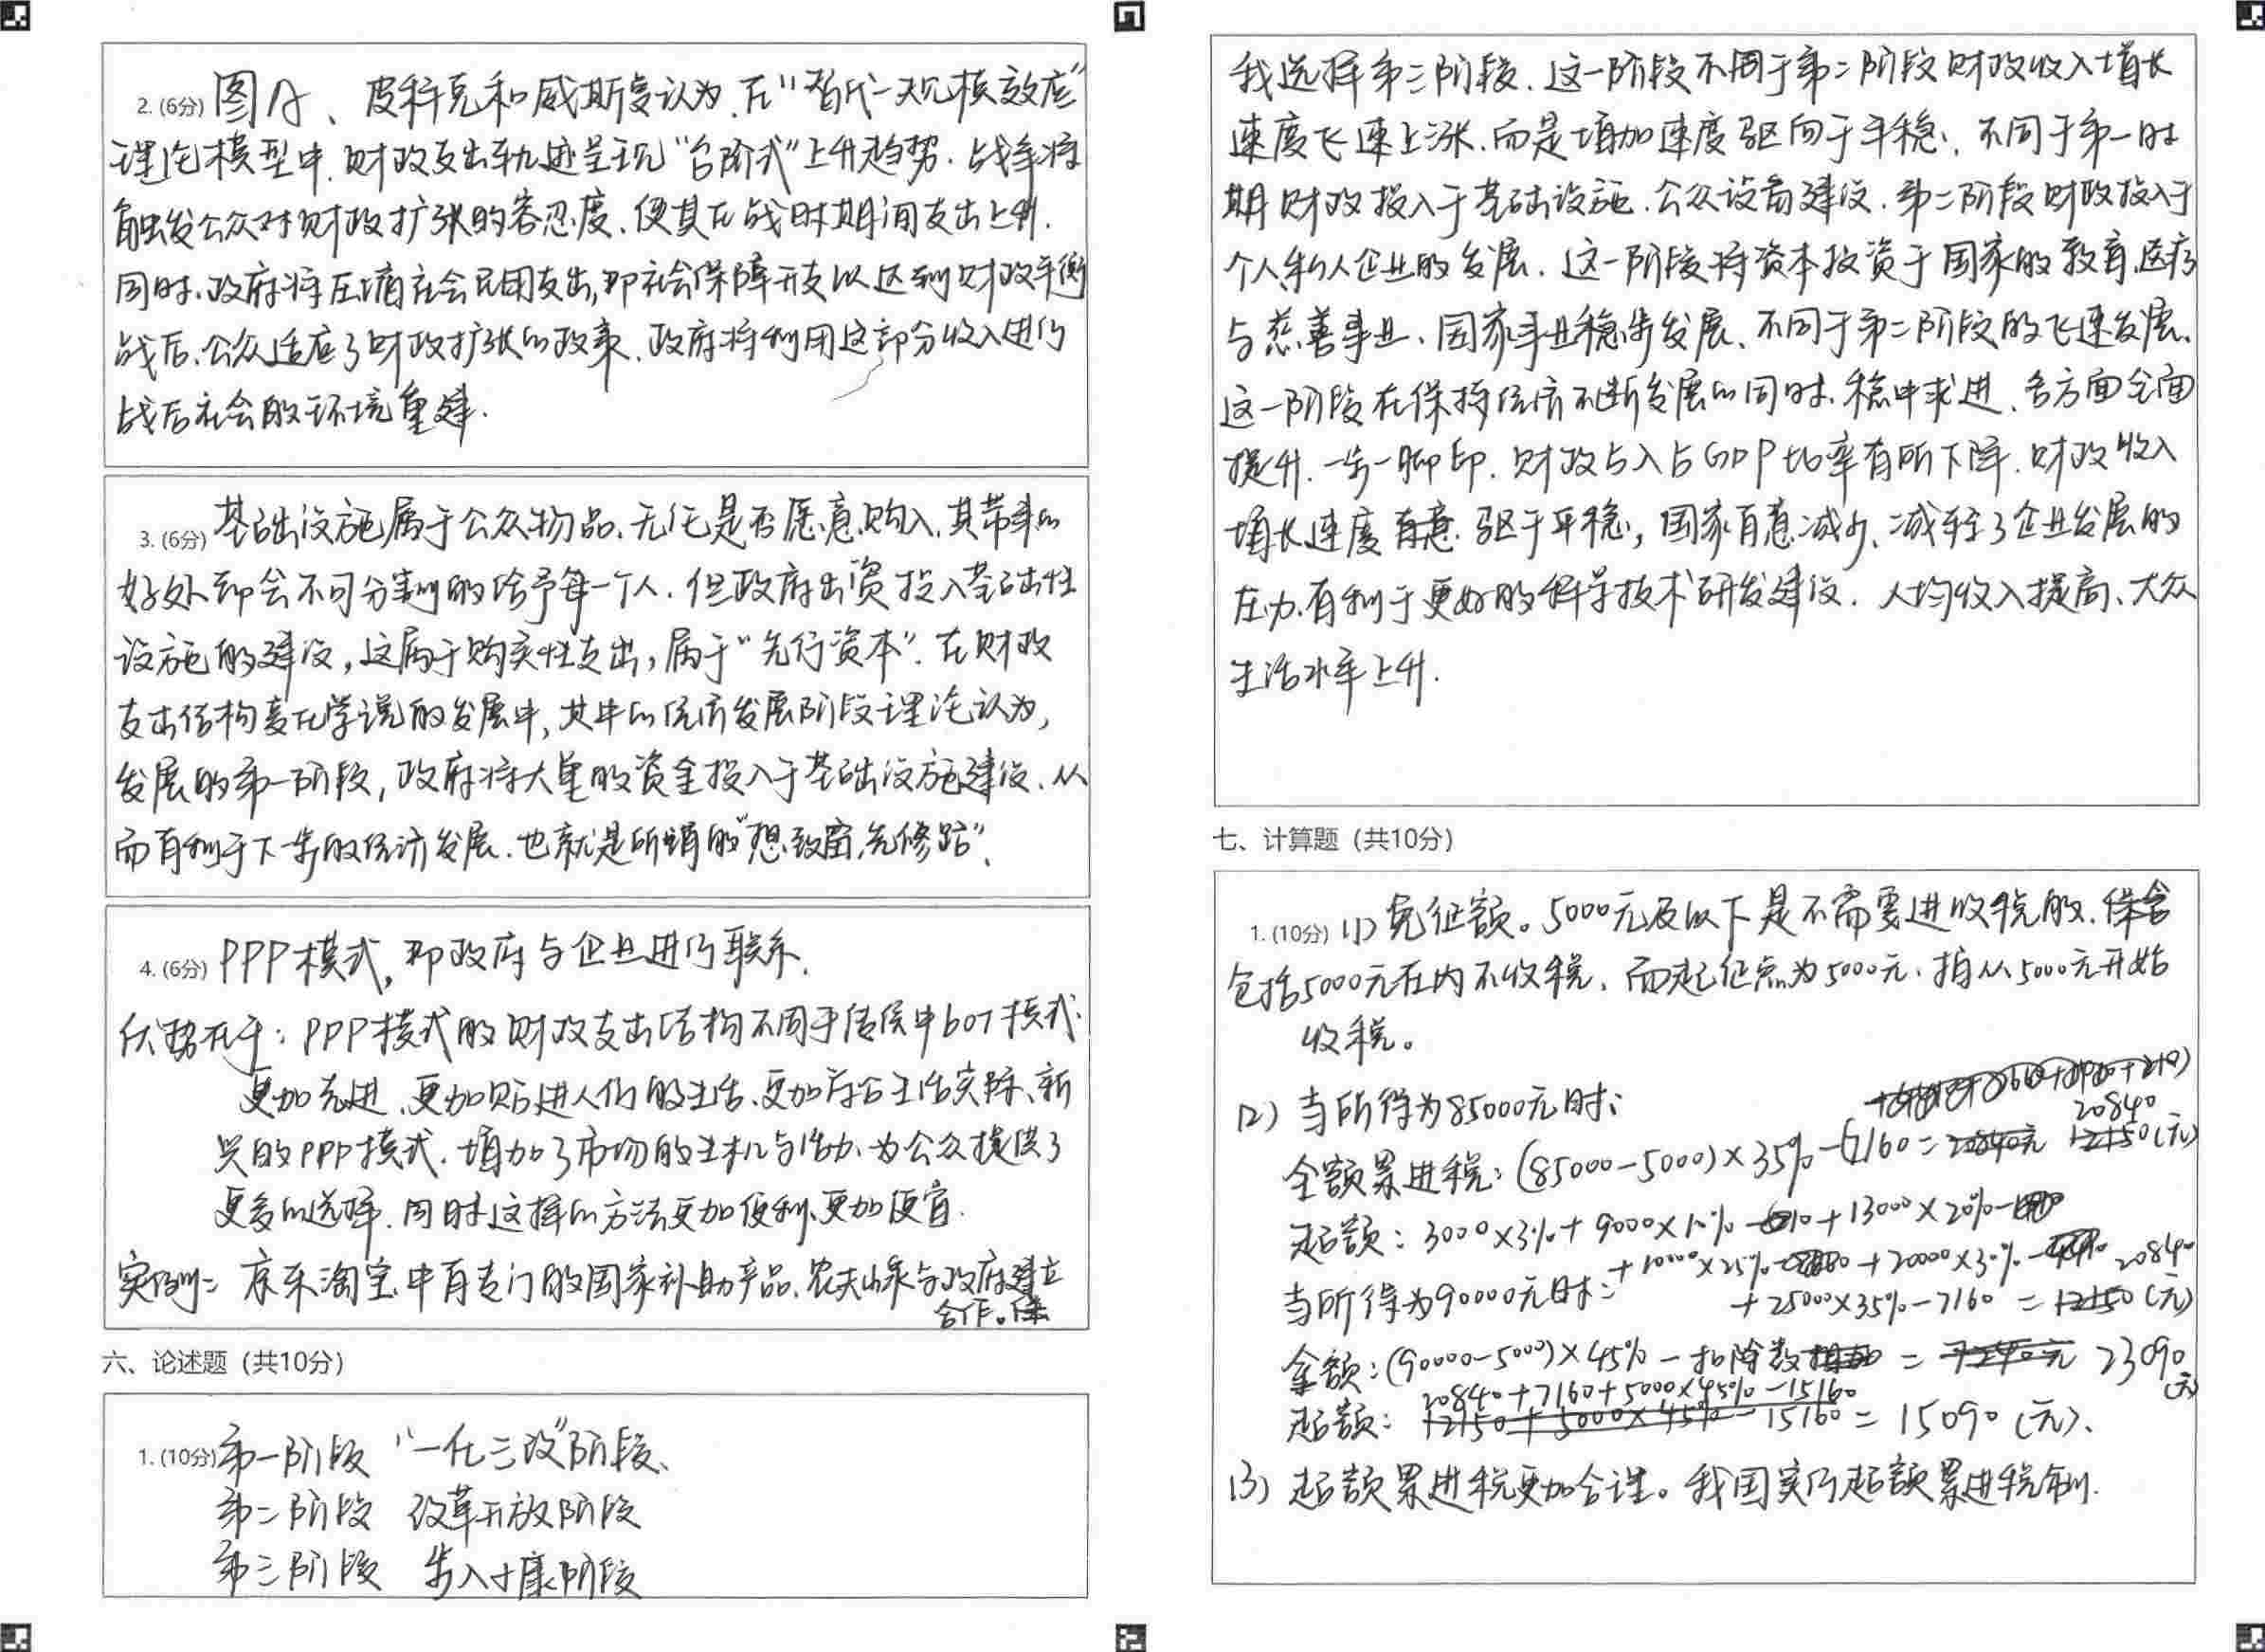 2. (6分) 图A、皮科克和威斯曼认为,在"替代-规模效应"
理论模型中,财政支出轨迹呈现"台阶式"上升趋势.战争将
触发公众对财政扩张的容忍度,使其在战时期间支出上升.
同时,政府将压缩社会民用支出,即社会保障开支以达到财政平衡
战后,公众适应了财政扩张的政策,政府将利用这部分收入进行
战后社会的环境重建.
3. (6分) 基础设施属于公众物品,无论是否愿意购入,其带来的
好处都会不可分割的给予每一个人.但政府出资投入基础性
设施的建设,这属于购买性支出,属于"先行资本".在财政
支出结构变化学说的发展中,其中的经济发展阶段理论认为,
发展的第一阶段,政府将大量的资金投入于基础设施建设,从
而有利于下一步的经济发展.也就是所谓的"想致富,先修路".
4. (6分) PPP模式,即政府与企业进行联系.
优势在于:PPP模式的财政支出结构不同于传统中bot模式.
更加先进、更加贴进人们的生活、更加符合生活实际、新
兴的PPP模式.增加了市场的生机与活力,为公众提供了
更多的选择.同时这样的方法更加便利、更加便宜.
实例:京东淘宝中有专门的国家补助产品.农夫山泉与政府建立
合作。
六、论述题(共10分)
1. (10分) 第一阶段 "一化三改"阶段、
第二阶段 改革开放阶段
第三阶段 步入小康阶段
我选择第三阶段.这一阶段不同于第二阶段财政收入增长
速度飞速上涨,而是增加速度驱向于平稳,不同于第一时
期财政投入于基础设施、公众设备建设.第二阶段财政投入于
个人私人企业的发展.这一阶段将资本投资于国家的教育、医疗
与慈善事业、国家事业稳步发展、不同于第二阶段的飞速发展.
这一阶段在保持经济不断发展的同时,稳中求进、各方面全面
提升.一步一脚印.财政占入占GDP比率有所下降.财政收入
增长速度有意驱于平稳,国家有意减少、减轻了企业发展的
压力.有利于更好的科学技术研发建设.人均收入提高、大众
生活水平上升.
七、计算题(共10分)
1. (10分) (1) 免征额。5000元及以下是不需要进收税的.保含
包括5000元在内不收税,而起征点为5000元,指从5000元开始
收税。
(2) 当所得为85000元时:
全额累进税:(85000-5000)×35%-7160= 20840 (元)
超额:3000×3%+9000×10% +13000×20%
+10000×25% +20000×30%
+25000×35%-7160 = 20840 (元)
当所得为90000元时:
全额:(90000-5000)×45%-扣除数 = 23090 (元)
超额:20840+7160+5000×45%-15160 = 15090 (元).
(3) 超额累进税更加合理。我国实行超额累进税制.